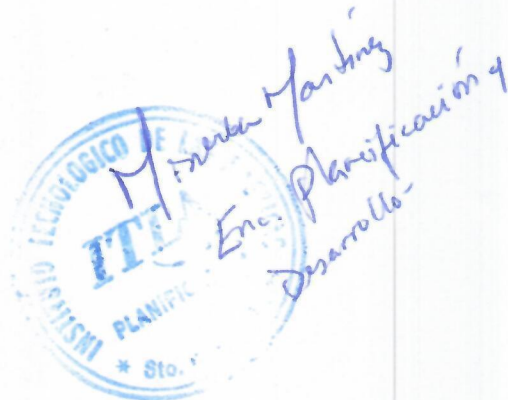 Minerva Martínez
Enc. Planificación y
Desarrollo-
INSTITUTO TECNOLOGICO DE
ITL
PLANIFIC
* Sto.